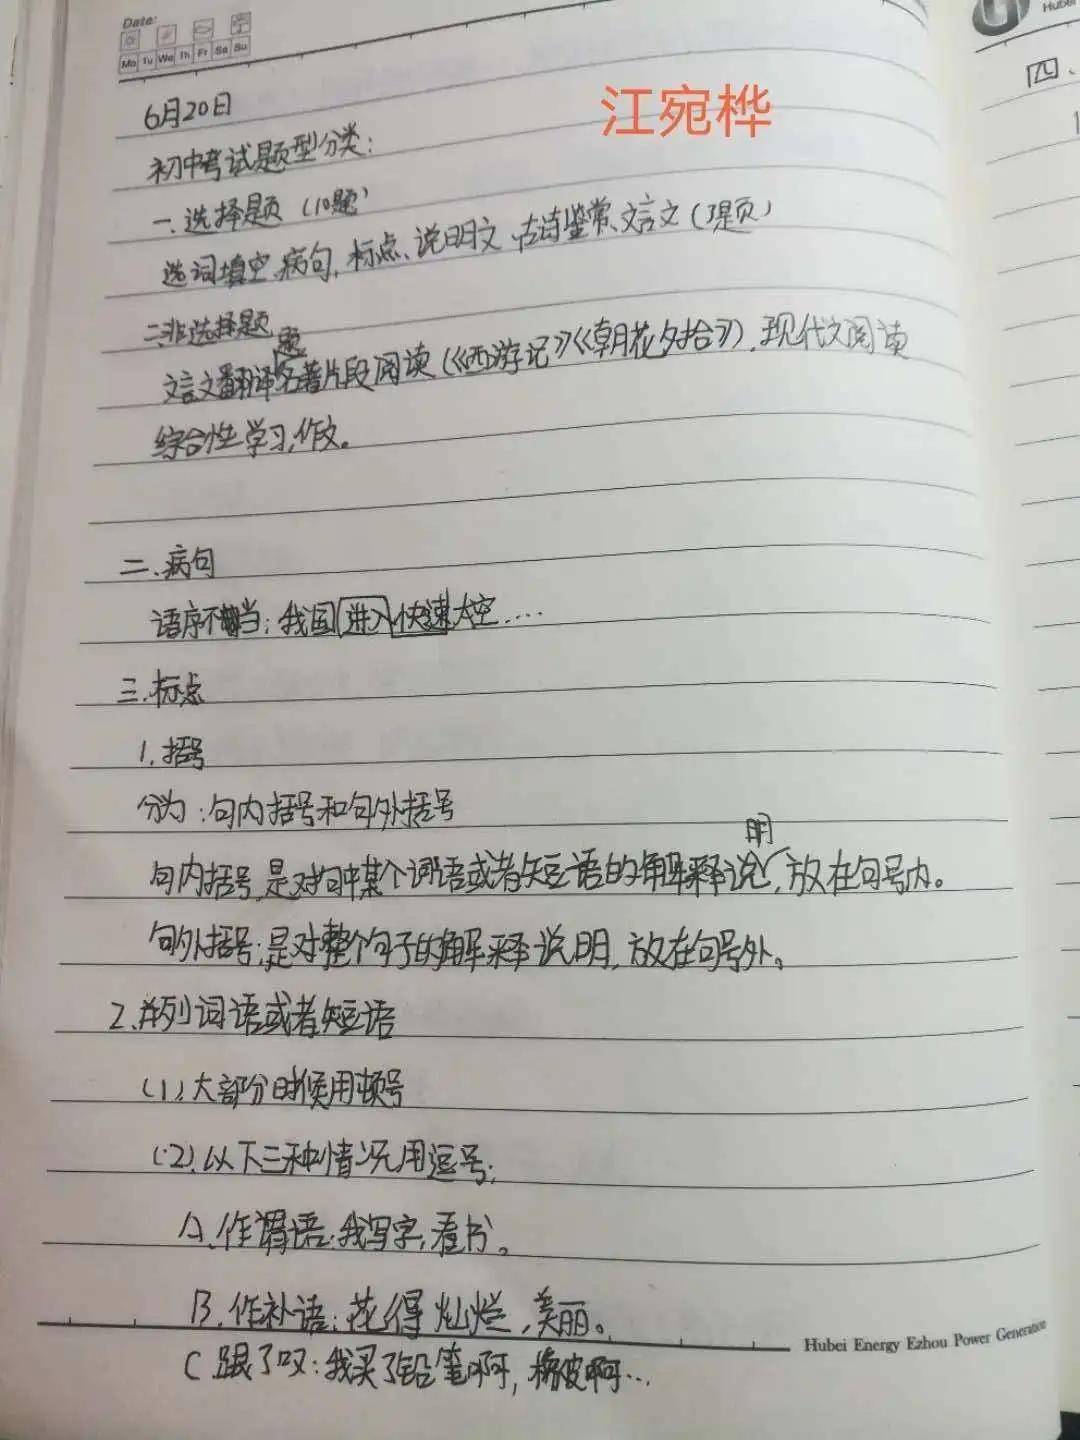 Date:
Mo Tu We Th Fr Sa Su
Hubei
四、
江宛桦
6月20日
初中考试题型分类:
一、选择题 (10题)
选词填空、病句、标点、说明文、古诗鉴赏、文言文(3题)
二、非选择题
文言文翻译题、名著片段阅读(《西游记》《朝花夕拾》)、现代文阅读
综合性学习、作文。
二、病句
语序不当:我国进入快速太空....
三、标点
1.括号
分为:句内括号和句外括号
句内括号,是对句中某个词语或者短语的解释说明,放在句号内。
句外括号:是对整个句子的解释说明,放在句号外。
2.并列词语或者短语
(1)、大部分时候用顿号
(2)、以下三种情况用逗号:
A.作谓语:我写字,看书。
B.作补语:花得灿烂,美丽。
C.跟了叹:我买了铅笔啊,橡皮啊...
Hubei Energy Ezhou Power Generation